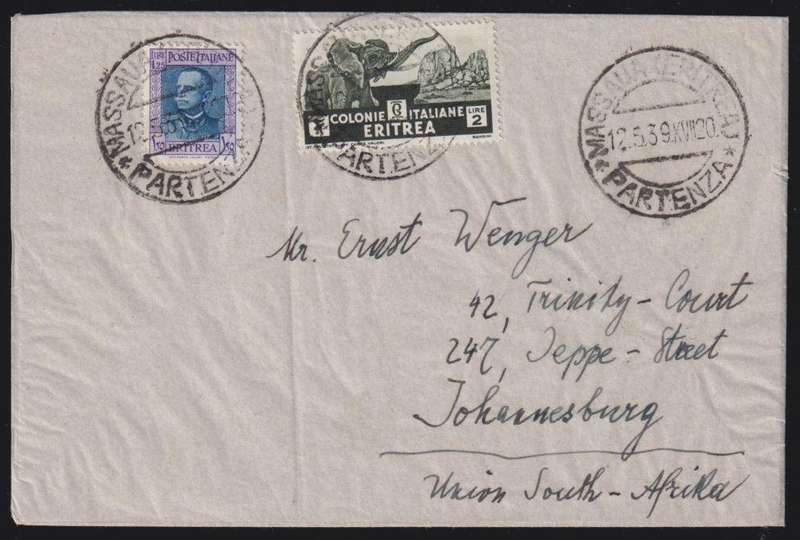 LIRE
1.25
POSTE ITALIANE
ERITREA
COLONIE ITALIANE
ERITREA
LIRE
2
MASSAUA
PARTENZA
MASSAUA
PARTENZA
MASSAUA (ERITREA)
12.5.39.XVII 20
* PARTENZA *
Mr. Ernst Wenger
42, Trinity-Court
247, Jeppe-Street
Johannesburg
Union South-Afrika